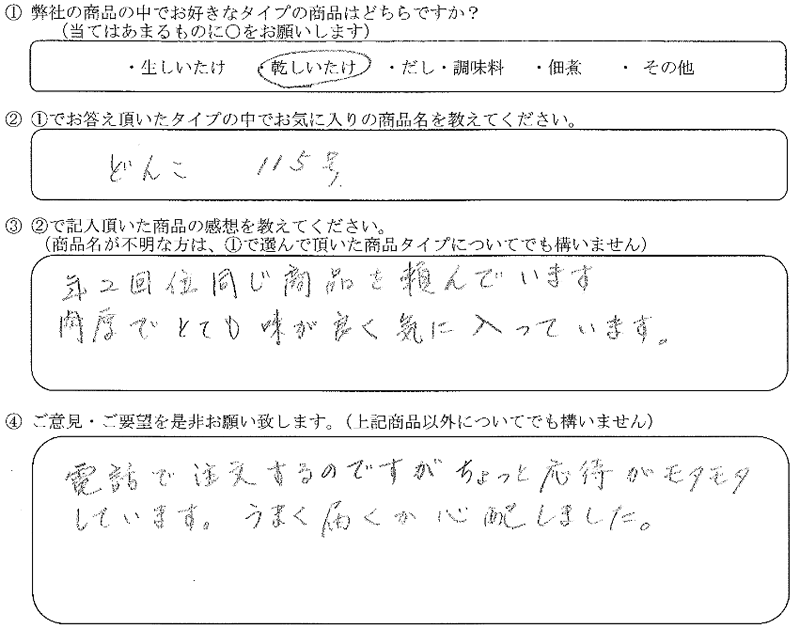 ① 弊社の商品の中でお好きなタイプの商品はどちらですか？
（当てはあまるものに○をお願いします）
・生しいたけ ・乾しいたけ ・だし・調味料 ・佃煮 ・ その他
② ①でお答え頂いたタイプの中でお気に入りの商品名を教えてください。
どんこ 115号
③ ②で記入頂いた商品の感想を教えてください。
（商品名が不明な方は、①で選んで頂いた商品タイプについてでも構いません）
年2回位同じ商品を頼んでいます
肉厚でとても味が良く気に入っています。
④ ご意見・ご要望を是非お願い致します。（上記商品以外についてでも構いません）
電話で注文するのですがちょっと応待がモタモタ
しています。うまく届くか心配しました。